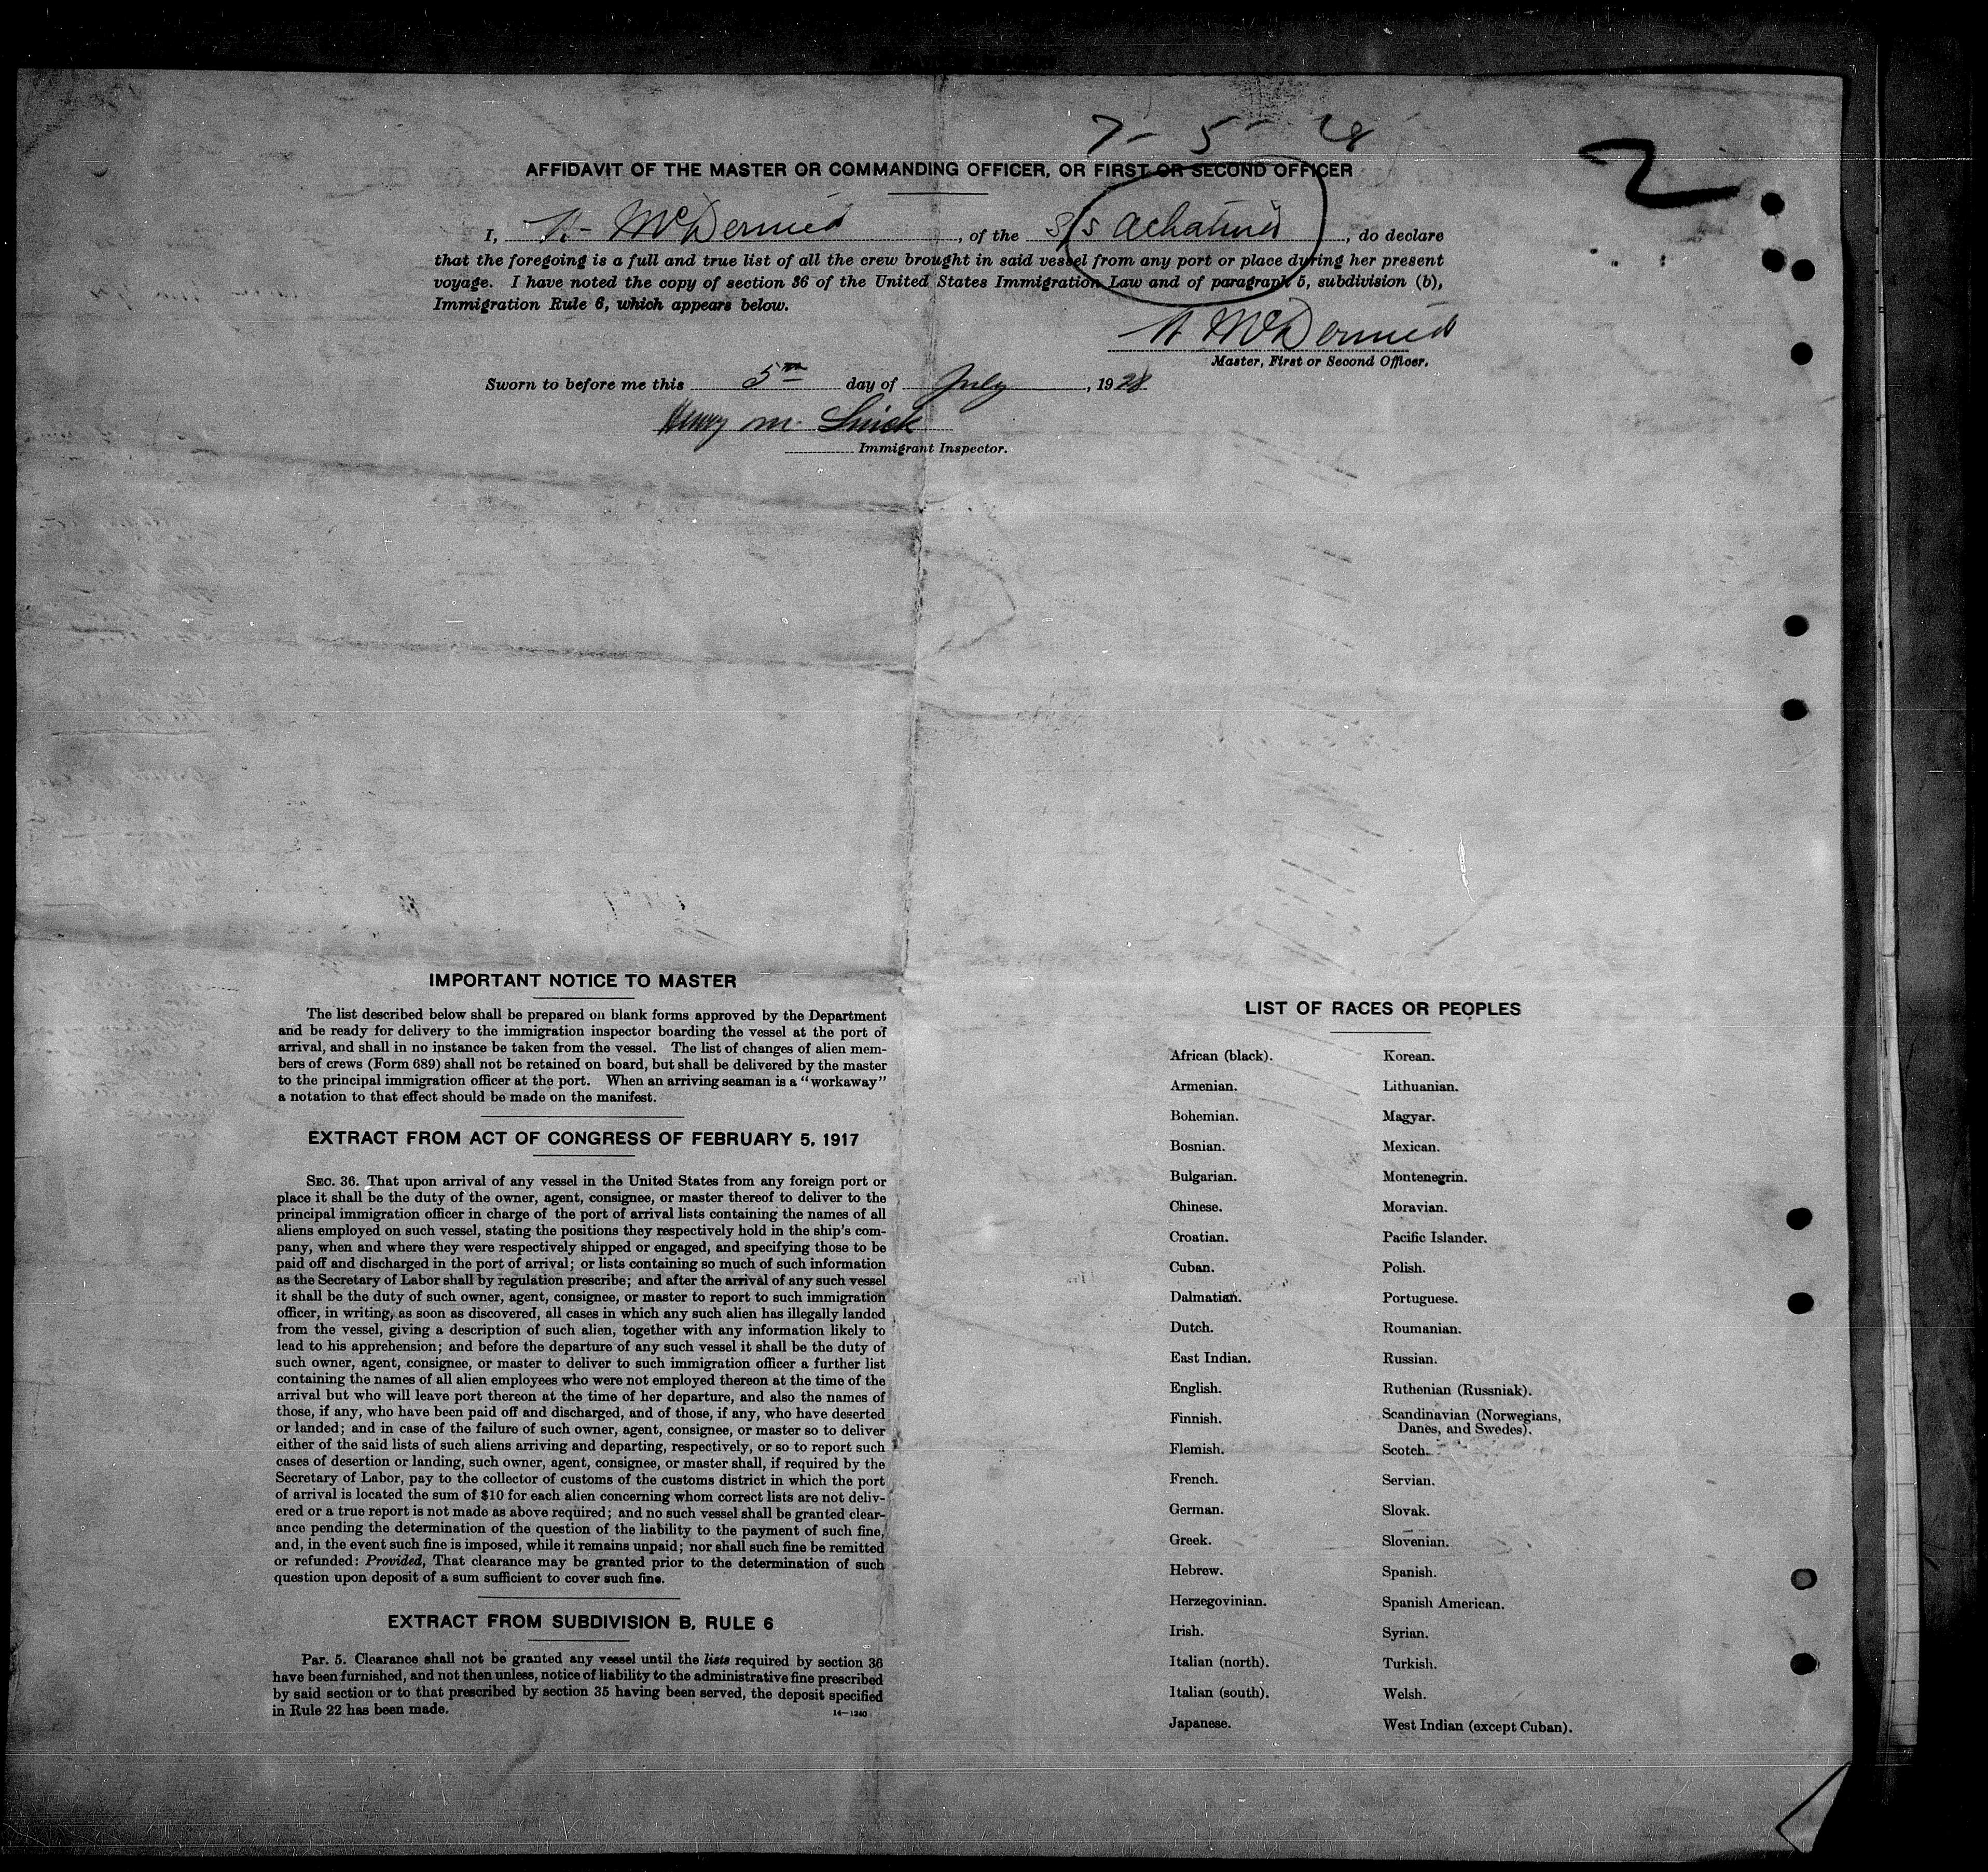 7 - 5 - 28
2
AFFIDAVIT OF THE MASTER OR COMMANDING OFFICER, OR FIRST OR SECOND OFFICER
I, McDermid, of the S/S Achatina, do declare
that the foregoing is a full and true list of all the crew brought in said vessel from any port or place during her present
voyage. I have noted the copy of section 36 of the United States Immigration Law and of paragraph 5, subdivision (b),
Immigration Rule 6, which appears below.
McDermid
Master, First or Second Officer.
Sworn to before me this 5th day of July, 1928
Henry M.
Immigrant Inspector.
IMPORTANT NOTICE TO MASTER
The list described below shall be prepared on blank forms approved by the Department
and be ready for delivery to the immigration inspector boarding the vessel at the port of
arrival, and shall in no instance be taken from the vessel. The list of changes of alien mem-
bers of crews (Form 689) shall not be retained on board, but shall be delivered by the master
to the principal immigration officer at the port. When an arriving seaman is a "workaway"
a notation to that effect should be made on the manifest.
EXTRACT FROM ACT OF CONGRESS OF FEBRUARY 5, 1917
SEC. 36. That upon arrival of any vessel in the United States from any foreign port or
place it shall be the duty of the owner, agent, consignee, or master thereof to deliver to the
principal immigration officer in charge of the port of arrival lists containing the names of all
aliens employed on such vessel, stating the positions they respectively hold in the ship's com-
pany, when and where they were respectively shipped or engaged, and specifying those to be
paid off and discharged in the port of arrival; or lists containing so much of such information
as the Secretary of Labor shall by regulation prescribe; and after the arrival of any such vessel
it shall be the duty of such owner, agent, consignee, or master to report to such immigration
officer, in writing, as soon as discovered, all cases in which any such alien has illegally landed
from the vessel, giving a description of such alien, together with any information likely to
lead to his apprehension; and before the departure of any such vessel it shall be the duty of
such owner, agent, consignee, or master to deliver to such immigration officer a further list
containing the names of all alien employees who were not employed thereon at the time of the
arrival but who will leave port thereon at the time of her departure, and also the names of
those, if any, who have been paid off and discharged, and of those, if any, who have deserted
or landed; and in case of the failure of such owner, agent, consignee, or master so to deliver
either of the said lists of such aliens arriving and departing, respectively, or so to report such
cases of desertion or landing, such owner, agent, consignee, or master shall, if required by the
Secretary of Labor, pay to the collector of customs of the customs district in which the port
of arrival is located the sum of $10 for each alien concerning whom correct lists are not deliv-
ered or a true report is not made as above required; and no such vessel shall be granted clear-
ance pending the determination of the question of the liability to the payment of such fine,
and, in the event such fine is imposed, while it remains unpaid; nor shall such fine be remitted
or refunded: Provided, That clearance may be granted prior to the determination of such
question upon deposit of a sum sufficient to cover such fine.
EXTRACT FROM SUBDIVISION B, RULE 6
Par. 5. Clearance shall not be granted any vessel until the lists required by section 36
have been furnished, and not then unless, notice of liability to the administrative fine prescribed
by said section or to that prescribed by section 35 having been served, the deposit specified
in Rule 22 has been made.
14—1240
LIST OF RACES OR PEOPLES
African (black).
Armenian.
Bohemian.
Bosnian.
Bulgarian.
Chinese.
Croatian.
Cuban.
Dalmatian.
Dutch.
East Indian.
English.
Finnish.
Flemish.
French.
German.
Greek.
Hebrew.
Herzegovinian.
Irish.
Italian (north).
Italian (south).
Japanese.
Korean.
Lithuanian.
Magyar.
Mexican.
Montenegrin.
Moravian.
Pacific Islander.
Polish.
Portuguese.
Roumanian.
Russian.
Ruthenian (Russniak).
Scandinavian (Norwegians,
Danes, and Swedes).
Scotch.
Servian.
Slovak.
Slovenian.
Spanish.
Spanish American.
Syrian.
Turkish.
Welsh.
West Indian (except Cuban).